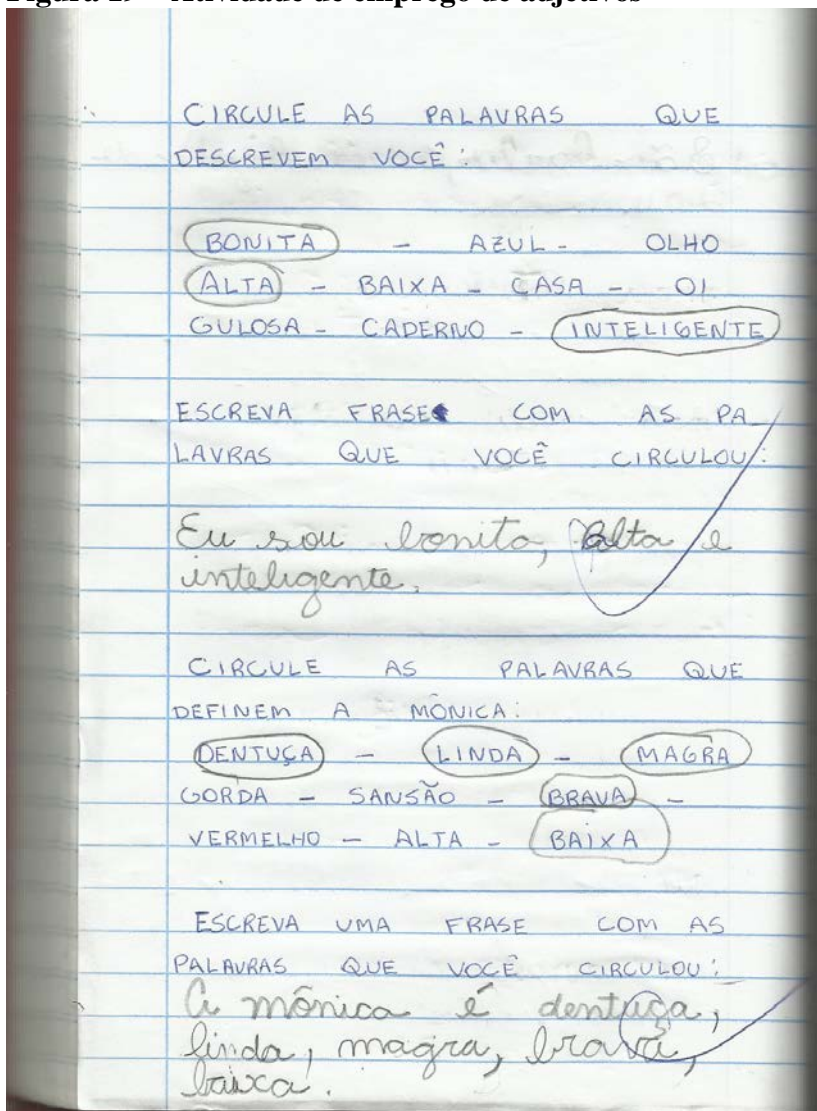 CIRCULE AS PALAVRAS QUE
DESCREVEM VOCÊ:
BONITA - AZUL - OLHO
ALTA - BAIXA - CASA - OI
GULOSA - CADERNO - INTELIGENTE
ESCREVA FRASE COM AS PA_
LAVRAS QUE VOCÊ CIRCULOU:
Eu sou bonita, alta e
inteligente.
CIRCULE AS PALAVRAS QUE
DEFINEM A MÔNICA:
DENTUÇA - LINDA - MAGRA
GORDA - SANSÃO - BRAVA -
VERMELHO - ALTA - BAIXA
ESCREVA UMA FRASE COM AS
PALAVRAS QUE VOCÊ CIRCULOU:
A mônica é dentuça,
linda, magra, brava,
baixa.